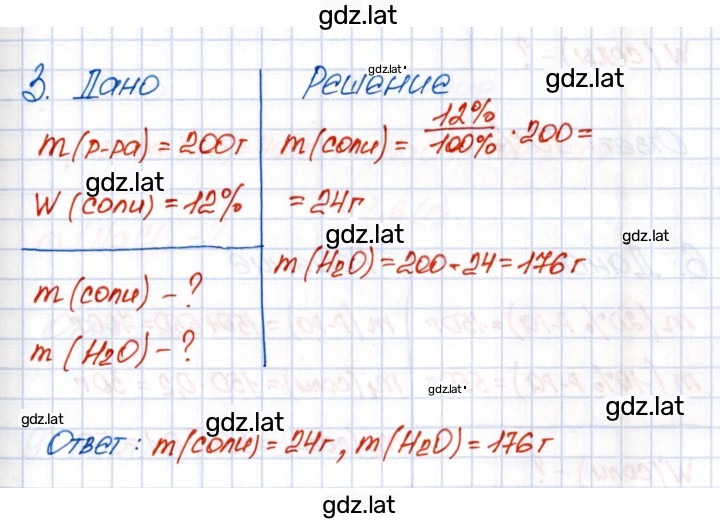 gdz.lat
3. Дано
Решение
gdz.lat
gdz.lat
m(р-ра) = 200г
m(соли) = 12%/100% · 200 =
gdz.lat
W(соли) = 12%
= 24г
gdz.lat
gdz.lat
m(H2O) = 200 - 24 = 176г
m(соли) - ?
m(H2O) - ?
gdz.lat
gdz.lat
gdz.lat
gdz.lat
Ответ: m(соли) = 24г, m(H2O) = 176г
gdz.lat